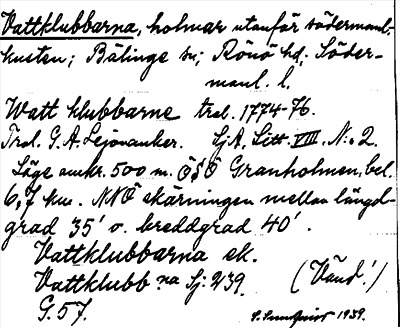 Vattklubbarna, holmar utanför södermanl.-
kusten; Bälinge sn; Rönö hd; Söder-
manl. l.
Watt klubbarne tral. 1774-76.
Tral. G. A. Lejonanker. Sj A, Litt. VIII. N:o 2
Läge omkr. 500 m. ÖSÖ Granholmen, bel.
6,7 km. NNÖ skärningen mellan längd-
grad 35' o. breddgrad 40'.
Vattklubbarna ek.
Vattklubb na Sj: 239. (Vänd!)
G. 57.
1939.